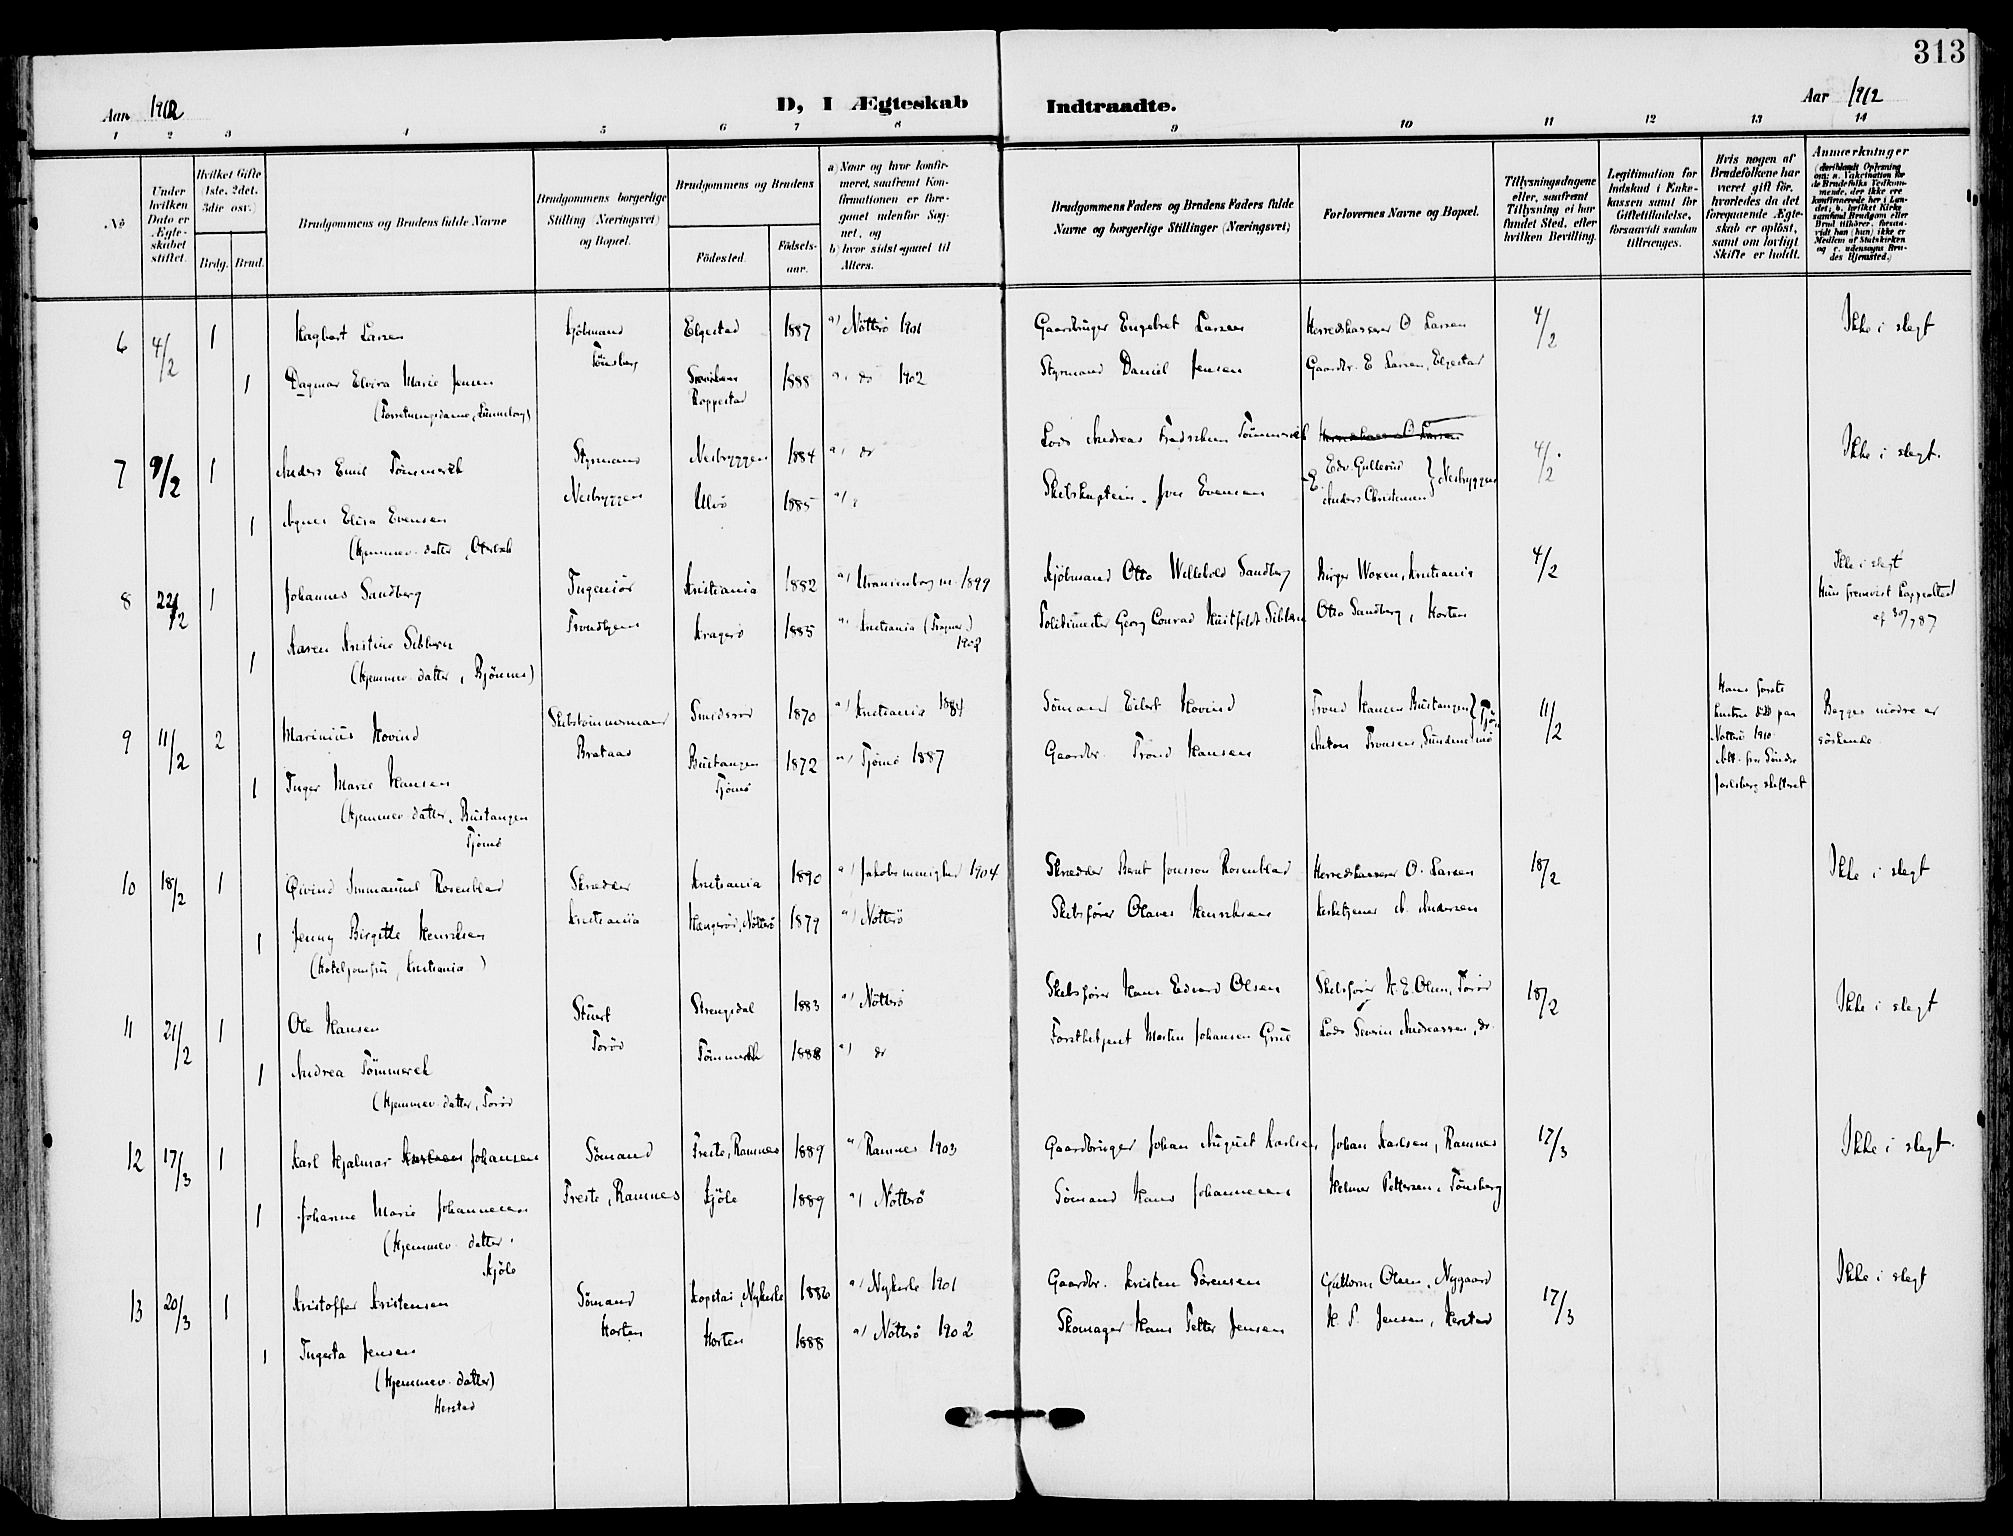 313
Aar 1912
D, I Ægteskab
Indtraadte.
Aar 1912
1 2 3 4 5 6 7 8 9 10 11 12 13 14
No
Under hvilken Dato er Ægteskabet stiftet.
Hvilket Gifte 1ste, 2det, 3die osv.)
Brdg. Brud.
Brudgommens og Brudens fulde Navne
Brudgommens borgerlige Stilling (Næringsvei) og Bopæl.
Brudgommens og Brudens
Fødested.
Fødselsaar.
a) Naar og hvor konfirmeret, saafremt Konfirmationen er foregaaet udenfor Sognet, og
b) hvor sidst gaaet til Alters.
Brudgommens Faders og Brudens Faders fulde Navne og borgerlige Stillinger (Næringsvei)
Forlovernes Navne og Bopæl.
Tillysningsdagene eller, saafremt Tillysning ei har fundet Sted, efter hvilken Bevilling.
Legitimation for Indskud i Enkekassen samt for Giftetilladelse, forsaavidt saadan tiltrænges.
Hvis nogen af Brudefolkene har været gift før, hvorledes da det foregaaende Ægteskab er opløst, samt om lovligt Skifte er holdt.
Anmærkninger
6 4/2 1 Hagbart Larsen Kjøbmand Tønsberg Elgestad 1887 a) Nøtterø 1901 Gaardbruger Engebret Larsen Herredskasserer O Larsen 4/2 Ikke i slegt
1 Dagmar Elvira Marie Jensen Roppestad 1888 a) do 1902 Styrmand Daniel Jensen Gaardbr. E Larsen, Elgestad
7 9/2 1 Anders Emil Tømmerek Styrmand Nesbryggen 1884 a) do Lods Andreas Fredriksen Tømmerek Herredskasserer O Larsen 4/2 Ikke i slegt.
1 Agnes Elisa Evensen Nesbryggen Ulvø 1885 a) Skibskaptein Iver Evensen Edv. Gullerud Anders Christensen } Nesbryggen
(Hjemmev. datter,
8 22/2 1 Johannes Sandberg Ingeniør Kristiania 1882 a) Uranienborg m. 1899 Kjøbmand Otto Willebold Sandberg Birger Woxen, Kristiania 4/2 Ikke i slegt
1 Karen Kristine Sibbern Trondhjem Kragerø 1885 a) Kristiania (Frogner) 1902 Politimester Georg Conrad Huitfeldt Sibbern Otto Sandberg, Horten Hun fremvist Koppeattest af 30/7 87
(Hjemmev. datter, Bjønnes)
9 11/2 2 Marinius Hovind Skibstømmermand Smidsrød 1870 a) Kristiania 1884 Sømand Eilert Hovind Trond Hansen Bustangen 11/2 Hans første hustru død paa Nøtterø 1910. Att. fra Søndre Jarlsberg skifteret Begges mødre er søskende
1 Inger Marie Hansen Brataas Bustangen Tjømø 1872 a) Tjømø 1887 Gaardbr. Trond Hansen Anton Tronsen, Sundene } Tjømø
(Hjemmev. datter, Bustangen Tjømø
10 18/2 1 Øivind Immanuel Rosenblad Skrædder Kristiania 1890 a) Jakobs menighet 1904 Skrædder Bernt Jonsson Rosenblad Herredskasserer O. Larsen 18/2 Ikke i slegt
1 Jenny Birgitte Henriksen Kristiania Hængerød, Nøtterø 1879 a) Nøtterø Skibsfører Olaves Henriksen Kirketjener A. Andersen
(Hoteljomfru, Kristiania)
11 21/2 1 Ole Hansen Stuert Strengsdal 1883 a) Nøtterø Skibsfører Hans Edvard Olsen Skibsfører H. E. Olsen, Torød 18/2 Ikke i slegt
1 Andrea Tømmerek Torød Tømmerek 1888 a) do Forstbetjent Morten Johansen Grue Lods Severin Andreassen, do.
(Hjemmev. datter, Torød
12 17/3 1 Karl Hjalmar Karlsen Johansen Sømand Freste, Ramnes 1889 a) Ramnes 1903 Gaardbruger Johan August Karlsen Johan Karlsen, Ramnes 17/3 Ikke i slegt.
1 Johanne Marie Johannesen Freste, Ramnes Kjøle 1889 a) Nøtterø Sømand Hans Johannesen Helmer Pettersen, Tønsberg
(Hjemmev. datter. Kjøle
13 20/3 1 Kristoffer Kristensen Sømand Kopstad, Nykirke 1886 a) Nykirke 1901 Gaardbr. Kristen Sørensen Guttorm Olsen, Nygaard 17/3 Ikke i slegt
1 Ingerta Jensen Horten Horten 1888 a) Nøtterø 1902 Skomager Hans Petter Jensen H. P. Jensen, Herstad
(Hjemmev. datter) Herstad